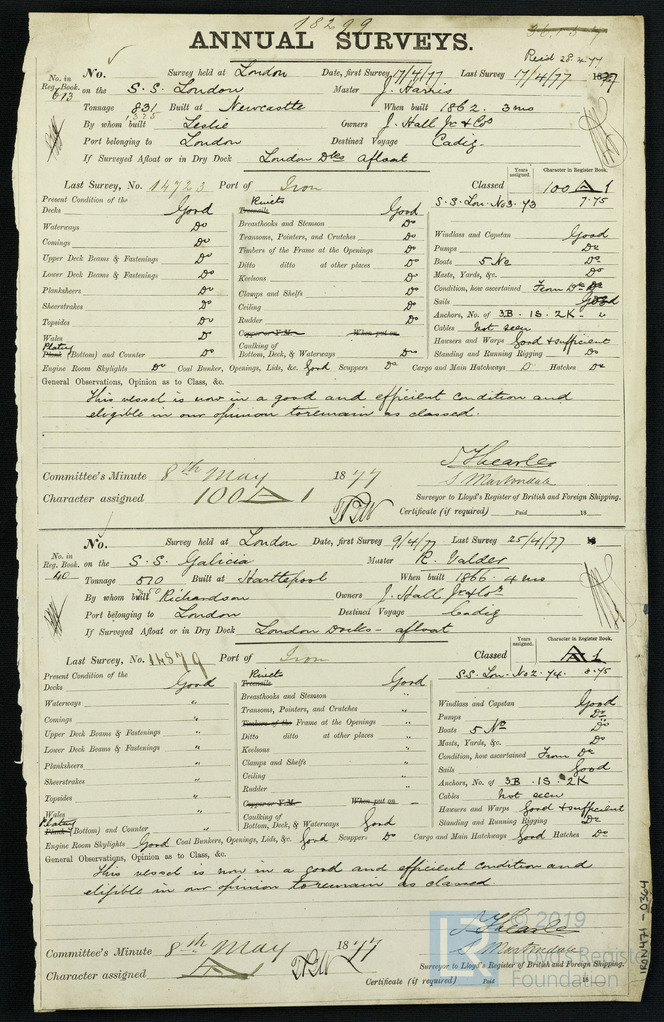 18299
ANNUAL SURVEYS.
Recd 28.4.77
No. in Reg. Book. 613
No. Survey held at London Date, first Survey 17/4/77 Last Survey 17/4/77 1877
on the S.S. London Master J. Harris
Tonnage 831 Built at Newcastle When built 1862. 3 mo
By whom built Leslie Owners J. Hall Jr & Co
Port belonging to London Destined Voyage Cadiz
If Surveyed Afloat or in Dry Dock London Dks afloat
Years assigned. Character in Register Book.
Last Survey, No. 14723 Port of Iron Classed 100 A 1
S.S. Lon. No3. 73 7.75
Present Condition of the
Decks Good
Waterways Do
Comings Do
Upper Deck Beams & Fastenings Do
Lower Deck Beams & Fastenings Do
Planksheers Do
Sheerstrakes Do
Topsides Do
Wales Do
Plating
Plank (Bottom) and Counter Do
Rivets
Treenails Good
Breasthooks and Stemson Do
Transoms, Pointers, and Crutches Do
Timbers of the Frame at the Openings Do
Ditto ditto at other places Do
Keelsons Do
Clamps and Shelfs Do
Ceiling Do
Rudder Do
Copper or Y.M. When put on
Caulking of Bottom, Deck, & Waterways Do
Windlass and Capstan Good
Pumps Do
Boats 5 No Do
Masts, Yards, &c. Do
Condition, how ascertained From Dk
Sails Good
Anchors, No. of 3B. 1S. 2K
Cables Not seen
Hawsers and Warps Good & sufficient
Standing and Running Rigging Do
Engine Room Skylights Do Coal Bunker, Openings, Lids, &c. Good Scuppers Do Cargo and Main Hatchways D Hatches Do
General Observations, Opinion as to Class, &c.
This vessel is now in a good and efficient condition and
eligible in our opinion to remain as classed.
Committee's Minute 8th May 1877
Character assigned 100 A 1
S. Martindale
Surveyor to Lloyd's Register of British and Foreign Shipping.
Certificate (if required) Paid 18
No. in Reg. Book. 40
No. Survey held at London Date, first Survey 9/4/77 Last Survey 25/4/77 18
on the S.S. Galicia Master R. Valder
Tonnage 570 Built at Hartlepool When built 1866. 4 mo
By whom built Richardson Owners J. Hall Jr & Co
Port belonging to London Destined Voyage Cadiz
If Surveyed Afloat or in Dry Dock London Docks - afloat
Years assigned. Character in Register Book.
Last Survey, No. 14879 Port of Iron Classed A 1
S.S. Lon. No2. 74. 8.75
Present Condition of the
Decks Good
Waterways "
Comings "
Upper Deck Beams & Fastenings "
Lower Deck Beams & Fastenings "
Planksheers "
Sheerstrakes "
Topsides "
Wales "
Plating
Plank (Bottom) and Counter "
Rivets
Treenails Good
Breasthooks and Stemson "
Transoms, Pointers, and Crutches "
Timbers of the Frame at the Openings "
Ditto ditto at other places "
Keelsons "
Clamps and Shelfs "
Ceiling "
Rudder "
Copper or Y.M. When put on -
Caulking of Bottom, Deck, & Waterways Good
Windlass and Capstan Good
Pumps Do
Boats 5 No Do
Masts, Yards, &c. Do
Condition, how ascertained From Dk
Sails Good
Anchors, No. of 3B. 1S. 2K
Cables Not seen
Hawsers and Warps Good & sufficient
Standing and Running Rigging Do
Engine Room Skylights Good Coal Bunkers, Openings, Lids, &c. Good Scuppers Do Cargo and Main Hatchways Good Hatches Do
General Observations, Opinion as to Class, &c.
This vessel is now in a good and efficient condition and
eligible in our opinion to remain as classed.
Committee's Minute 8th May 1877
Character assigned A 1
S. Martindale
Surveyor to Lloyd's Register of British and Foreign Shipping.
Certificate (if required) Paid 18
IRON471-0364
© 2019
Lloyd's Register
Foundation